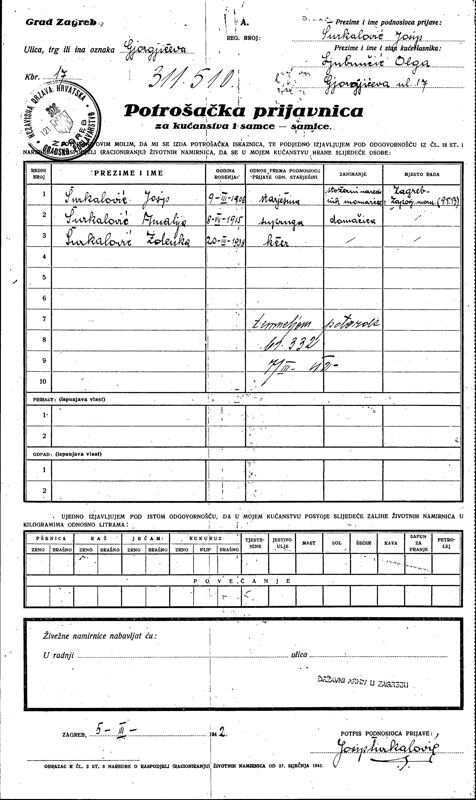 Grad Zagreb
A.
REG. BROJ:
Prezime i ime podnosioca prijave:
Šurkalović Josip
Ulica, trg ili ina oznaka Gjorgjićeva
Prezime i ime i stan kućevlasnika:
Ljubunčić Olga
Kbr. 17
311.510.
Gjorgjićeva ul. 17
NEZAVISNA DRŽAVA HRVATSKA
ZAGREB
Potrošačka prijavnica
za kućanstva i samce — samice.
MOLIM, DA MI SE IZDA POTROŠAČKA ISKAZNICA, TE PODJEDNO IZJAVLJUJEM POD ODGOVORNOŠĆU IZ ČL. 18 ST. 1
(RACIONIRANJU) ŽIVOTNIH NAMIRNICA, DA SE U MOJEM KUĆANSTVU HRANE SLIJEDEĆE OSOBE:
REDNI BROJ PREZIME I IME GODINA ROĐENJA ODNOS PREMA PODNOSIOCU PRIJAVE ODN. STARJEŠINI ZANIMANJE MJESTO RADA
1 Šurkalović Josip 9-III-1906 starješina Zagreb-
2 Šurkalović Amalija 8-VII-1915 supruga domaćica
3 Šurkalović Zdenka 20-III-1938 kćer / /
4
5
6
7 temeljem potvrde
8 br. 332
9 7/III-
10
PRIRAST: (ispunjava vlast)
1
2
OTPAD: (ispunjava vlast)
1
2
UJEDNO IZJAVLJUJEM POD ISTOM ODGOVORNOŠĆU, DA U MOJEM KUĆANSTVU POSTOJE SLIJEDEĆE ZALIHE ŽIVOTNIH NAMIRNICA U
KILOGRAMIMA ODNOSNO LITRAMA:
PŠENICA RAŽ JEČAM KUKURUZ TJESTENINE JESTIVO ULJE MAST SOL ŠEĆER KAVA SAPUN ZA PRANJE PETROLEJ
ZRNO BRAŠNO ZRNO BRAŠNO ZRNO BRAŠNO ZRNO KLIP BRAŠNO
POVEĆANJE
Živežne namirnice nabavljat ću:
U radnji ulica
DRŽAVNI ARHIV U ZAGREBU
ZAGREB, 5-III- 1942.
POTPIS PODNOSIOCA PRIJAVE:
Josip Šurkalović
OBRAZAC K ČL. 2 ST. 3 NAREDBE O RASPODJELI (RACIONIRANJU) ŽIVOTNIH NAMIRNICA OD 27. SIJEČNJA 1941.